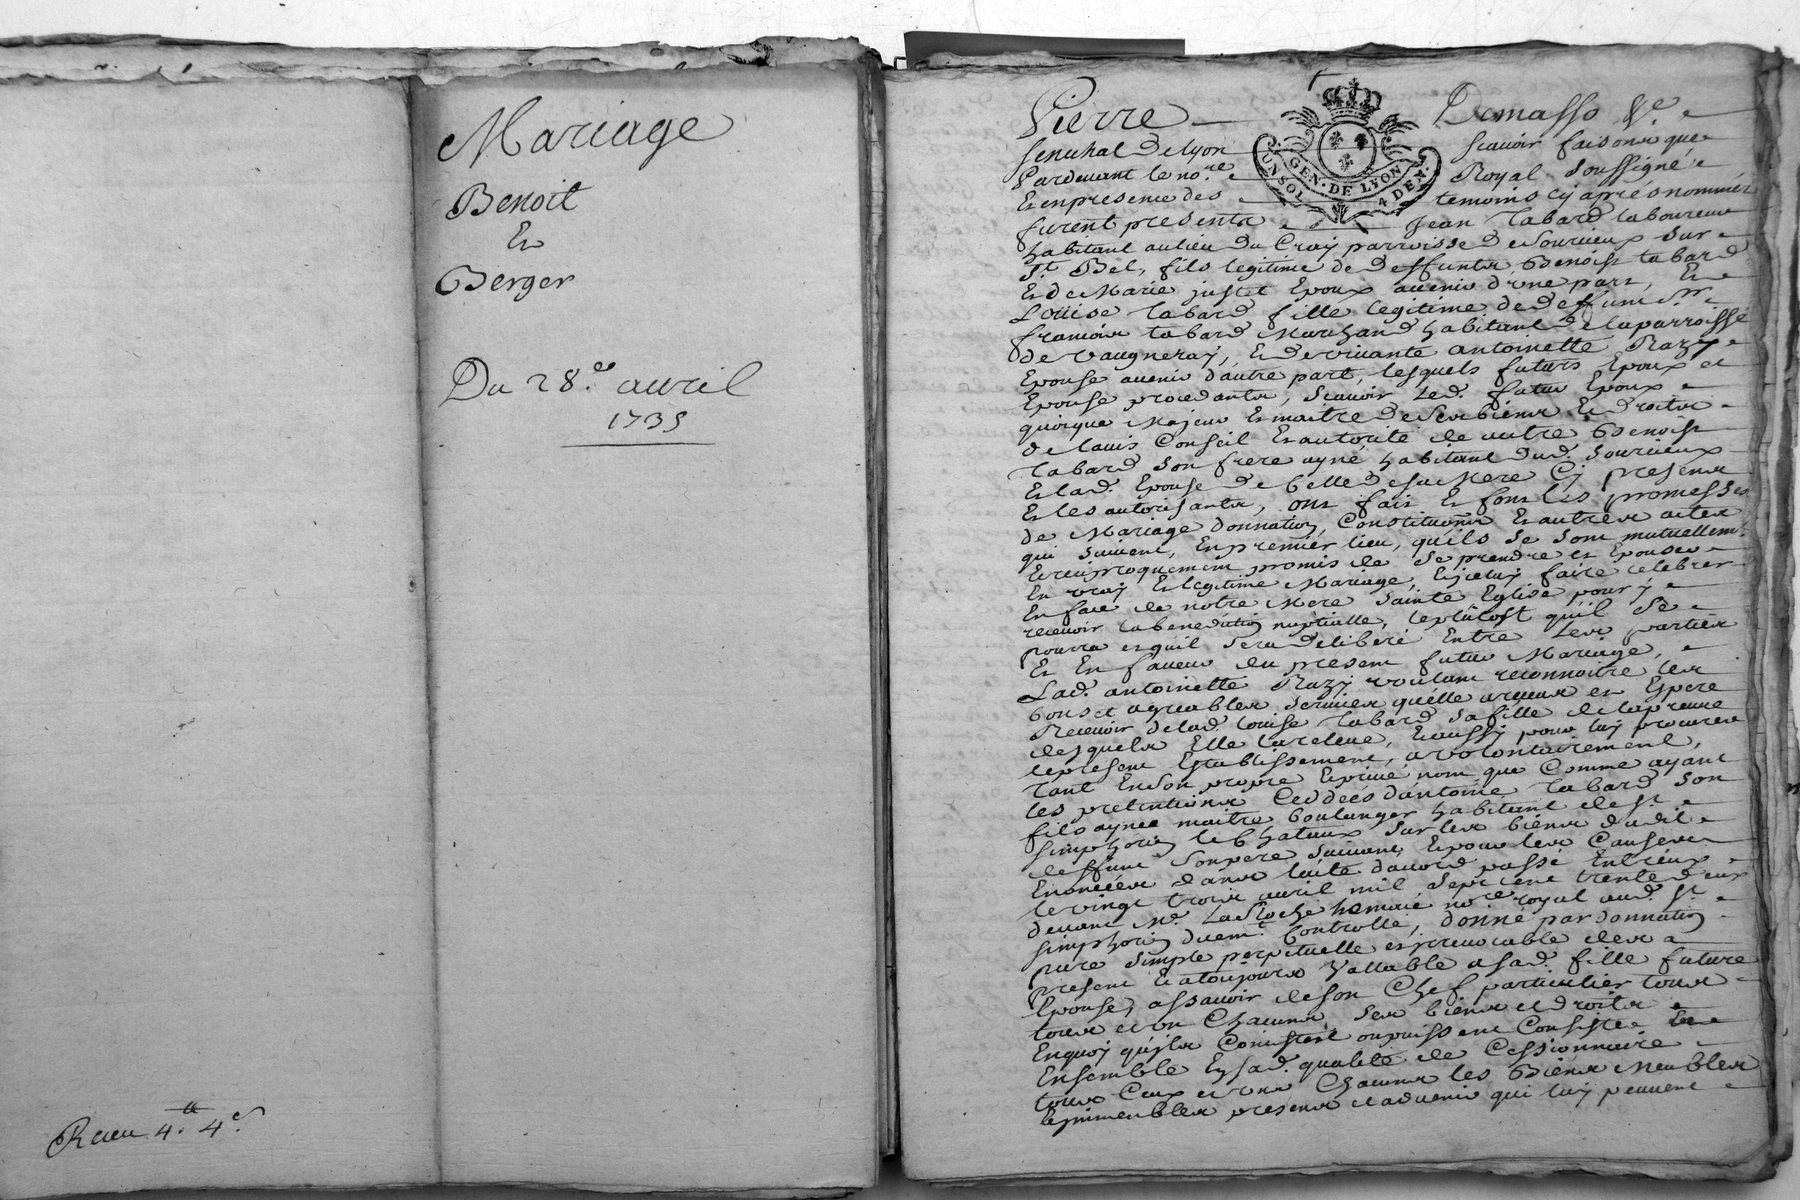 Mariage
Benoit
Et
Berger
Du 28.e avril
1735
Receu 4.tt 4.s
GEN. DE LYON
UN SOL 4 DEN.
Pierre Demasso
senechal De Lyon scavoir faisons que
Pardevant le no.re Royal soussigné
Et en presence des temoins cy aprés nommés
furent presents Jean Tabard laboureur
habitant au lieu Du Cray parroisse De Sourcieux sur
S.t Bel, fils legitime de Deffunts Benoist tabard
Et De Marie Epoux avenir d'une part, Et
Loüise Tabard fille legitime de Deffunt Sr.
francois tabard Marchand habitant De la parroisse
De Vaugneray, Et De vivante antoinette Razy
Epouse avenir d'autre part, lesquels futurs Epoux et
Epouse procedants, Scavoir Led. futur Epoux
quoique Majeur Et maitre De Ses biens Et Droits
De l'avis Conseil Et autorité de autre Benoist
Tabard Son frere ayné habitant Dud. Sourcieux
Et lad. Epouse De Celle De sa Mere Cy presents
Et les autorisants, ont fait Et font les promesses
De Mariage Donnation, Constitutions Et autres actes
qui suivent, En premier lieu, qu'ils Se Sont mutuellem.t
Et reciproquement promis de Se prendre et Epouser
En vray Et legitime Mariage, Iceluy faire celebrer
En face de notre Mere Sainte Eglise pour y
recevoir la benediction nuptialle, le plûtost qu'il Se
pourra et qu'il Sera Deliberé Entre Les parties
Et En faveur du present futur Mariage,
Lad. antoinette Razy voulant reconnoitre les
bons et agreables Services qu'elle a receus et Espere
Recevoir De lad. Louise Tabard Sa fille de la preuve
desquels Elle la releve, Et aussy pour luy procurer
le present Establissement, a volontairement,
Tant En Son propre Et privé nom que Comme ayant
les pretentions Ceddeés d'antoine Tabard Son
fils ayneé maitre boulanger habitant de S.t
Simphorien le Chateaux Sur les biens dudit
deffunt Son pere Suivant Et pour les Causes
Enonceés dans l'acte d'accord passé Entreux
le vingt trois avril mil Sept cent trente deux
devant M.e LaRoche no.re royal aud. S.t
Simphorien Duem.t Controllé, Donné par Donnation
pure Simple perpetuelle et irrevocable des a
present Et a toujours Vallable a sad. fille future
Epouse, assavoir de Son Chef particulier tous
tous et un Chacuns Ses biens et droits
En quoy qu'ils Consistent ou puissent Consister
Ensemble En sad. qualité de Cessionnaire
tous Ceux et uns Chacuns les Biens Meubles
Et immeubles presents et advenir qui luy peuvent